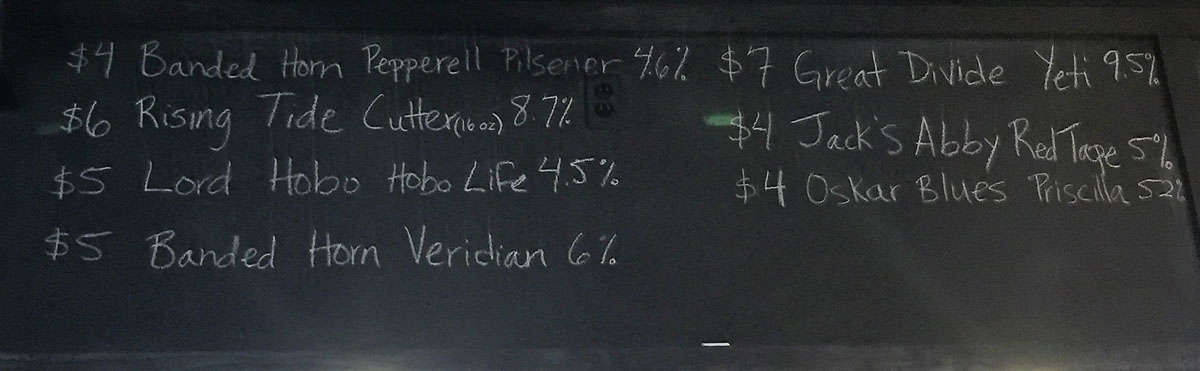 $4 Banded Horn Pepperell Pilsener 4.6%
$6 Rising Tide Cutter (16 oz) 8.7%
$5 Lord Hobo Hobo Life 4.5%
$5 Banded Horn Veridian 6%
$7 Great Divide Yeti 9.5%
$4 Jack's Abby Red Tape 5%
$4 Oskar Blues Priscilla 5.2%